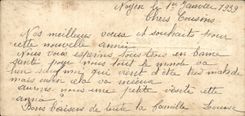 Noyon le 1er Janvier 1939
Chers Cousins
Nos meilleurs voeux et souhaits pour
cette nouvelle année
Nous vous espérons tous en bonne
santé pour nous tout le monde va
bien qui vient d'être malade
mais enfin va mieux
aurons nous une petite visite cette
année
Bons baisers de toute la famille